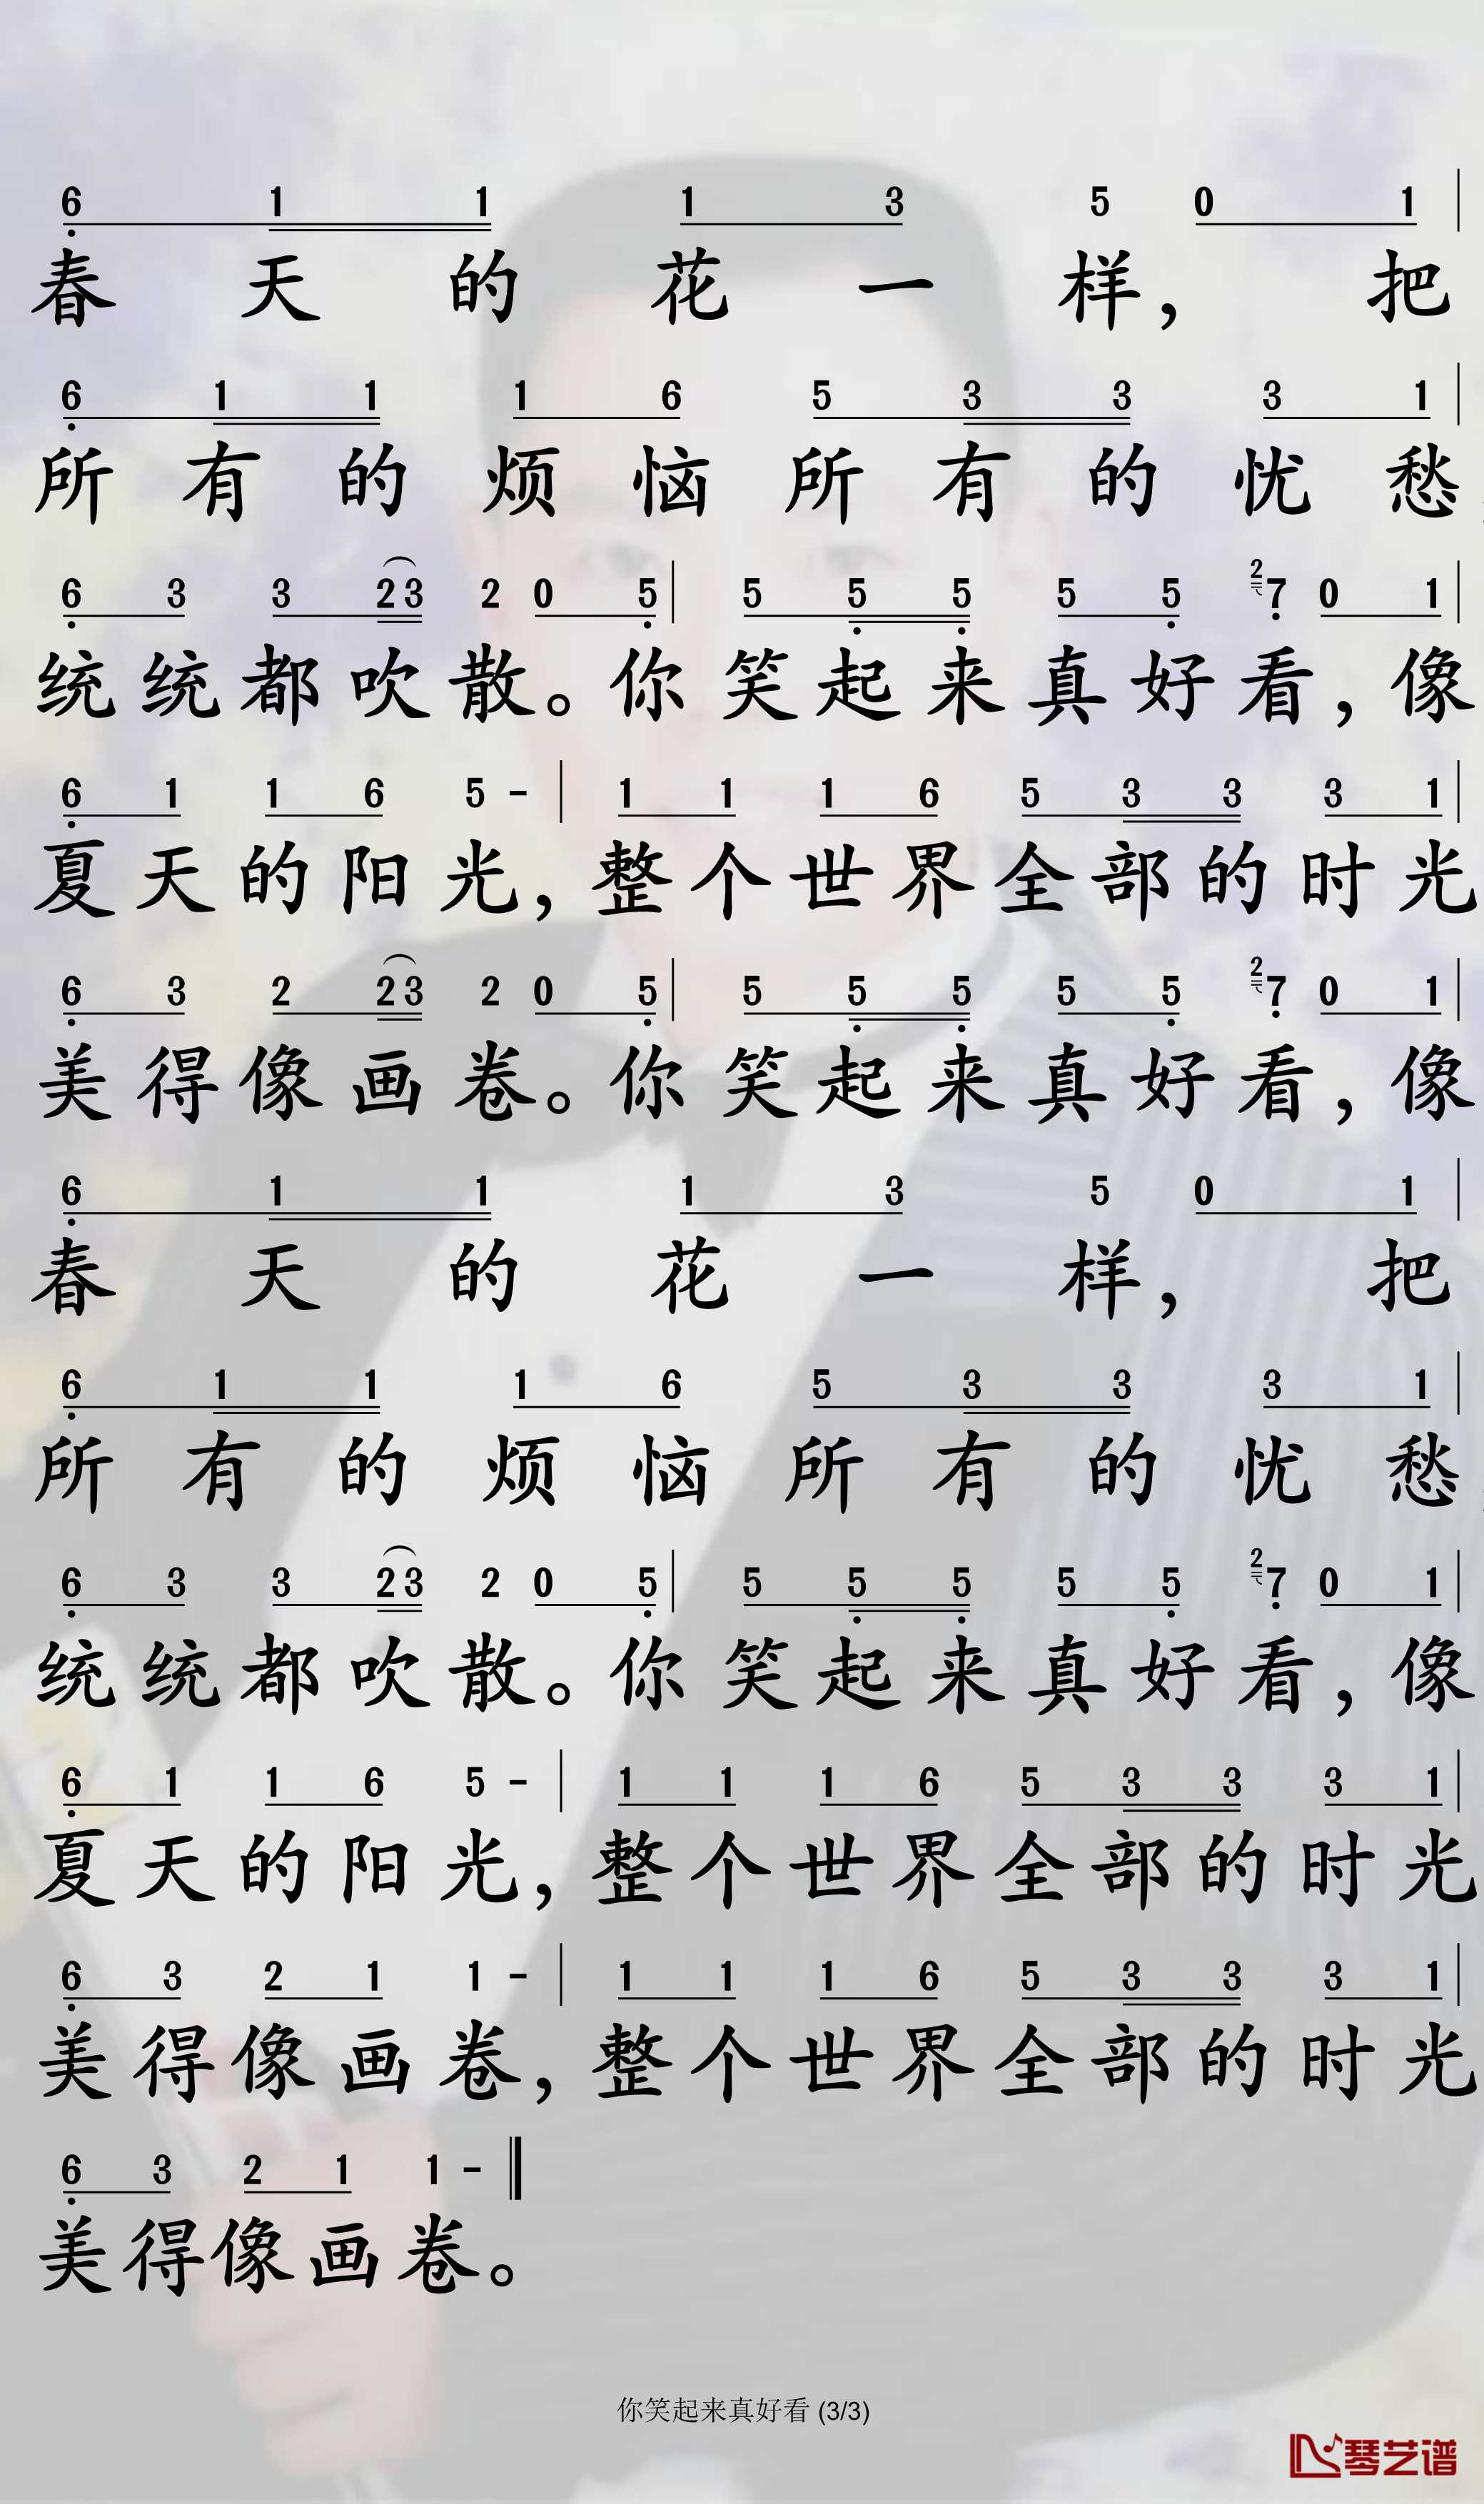 6 1 1 1 3 5 0 1
春天的花一样，把
6 1 1 1 6 5 3 3 3 1
所有的烦恼所有的忧愁
6 3 3 2 3 2 0 5 | 5 5 5 5 5 2 7 0 1
统统都吹散。你笑起来真好看，像
6 1 1 6 5 - | 1 1 1 6 5 3 3 3 1
夏天的阳光，整个世界全部的时光
6 3 2 2 3 2 0 5 | 5 5 5 5 5 2 7 0 1
美得像画卷。你笑起来真好看，像
6 1 1 1 3 5 0 1
春天的花一样，把
6 1 1 1 6 5 3 3 3 1
所有的烦恼所有的忧愁
6 3 3 2 3 2 0 5 | 5 5 5 5 5 2 7 0 1
统统都吹散。你笑起来真好看，像
6 1 1 6 5 - | 1 1 1 6 5 3 3 3 1
夏天的阳光，整个世界全部的时光
6 3 2 1 1 - | 1 1 1 6 5 3 3 3 1
美得像画卷，整个世界全部的时光
6 3 2 1 1 -
美得像画卷。
你笑起来真好看 (3/3)
琴艺谱